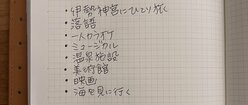 ・伊勢神宮にひとり旅
・落語
・一人カラオケ
・ミュージカル
・温泉施設
・美術館
・映画
・海を見に行く